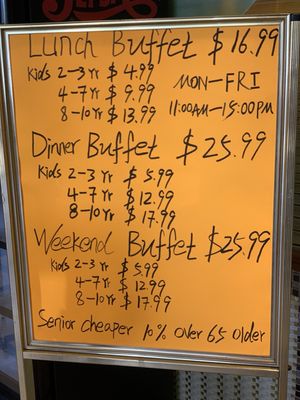 PEPSI
Lunch Buffet $16.99
Kids 2-3 Yr $4.99
MON-FRI
4-7 Yr $9.99
11:00AM-15:00PM
8-10 Yr $13.99
Dinner Buffet $25.99
Kids 2-3 Yr $5.99
4-7 Yr $12.99
8-10 Yr $17.99
Weekend Buffet $25.99
Kids 2-3 Yr $5.99
4-7 Yr $12.99
8-10 Yr $17.99
Senior cheaper 10% over 65 older